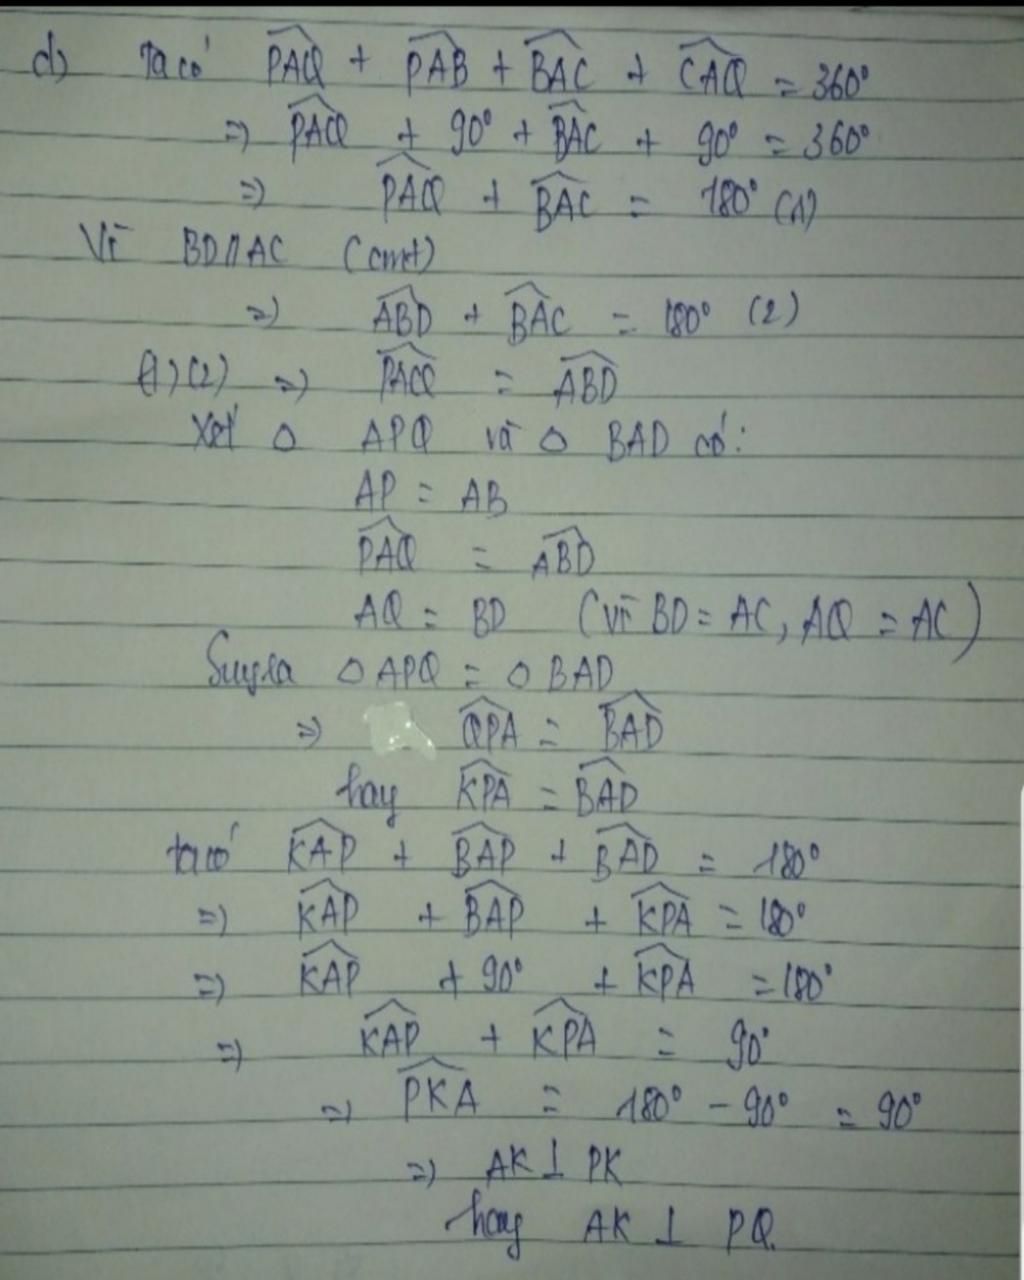 d) Ta có $\widehat{PAQ} + \widehat{PAB} + \widehat{BAC} + \widehat{CAQ} = 360°$
=> $\widehat{PAQ} + 90° + \widehat{BAC} + 90° = 360°$
=> $\widehat{PAQ} + \widehat{BAC} = 180°$ (1)
Vì BD // AC (cmt)
=> $\widehat{ABD} + \widehat{BAC} = 180°$ (2)
(1) (2) => $\widehat{PAQ} = \widehat{ABD}$
Xét △ APQ và △ BAD có:
AP = AB
$\widehat{PAQ} = \widehat{ABD}$
AQ = BD (vì BD = AC, AQ = AC)
Suy ra △ APQ = △ BAD
=> $\widehat{QPA} = \widehat{BAD}$
hay $\widehat{KPA} = \widehat{BAD}$
ta có $\widehat{KAP} + \widehat{BAP} + \widehat{BAD} = 180°$
=> $\widehat{KAP} + \widehat{BAP} + \widehat{KPA} = 180°$
=> $\widehat{KAP} + 90° + \widehat{KPA} = 180°$
=> $\widehat{KAP} + \widehat{KPA} = 90°$
=> $\widehat{PKA} = 180° - 90° = 90°$
=> AK ⊥ PK
hay AK ⊥ PQ.